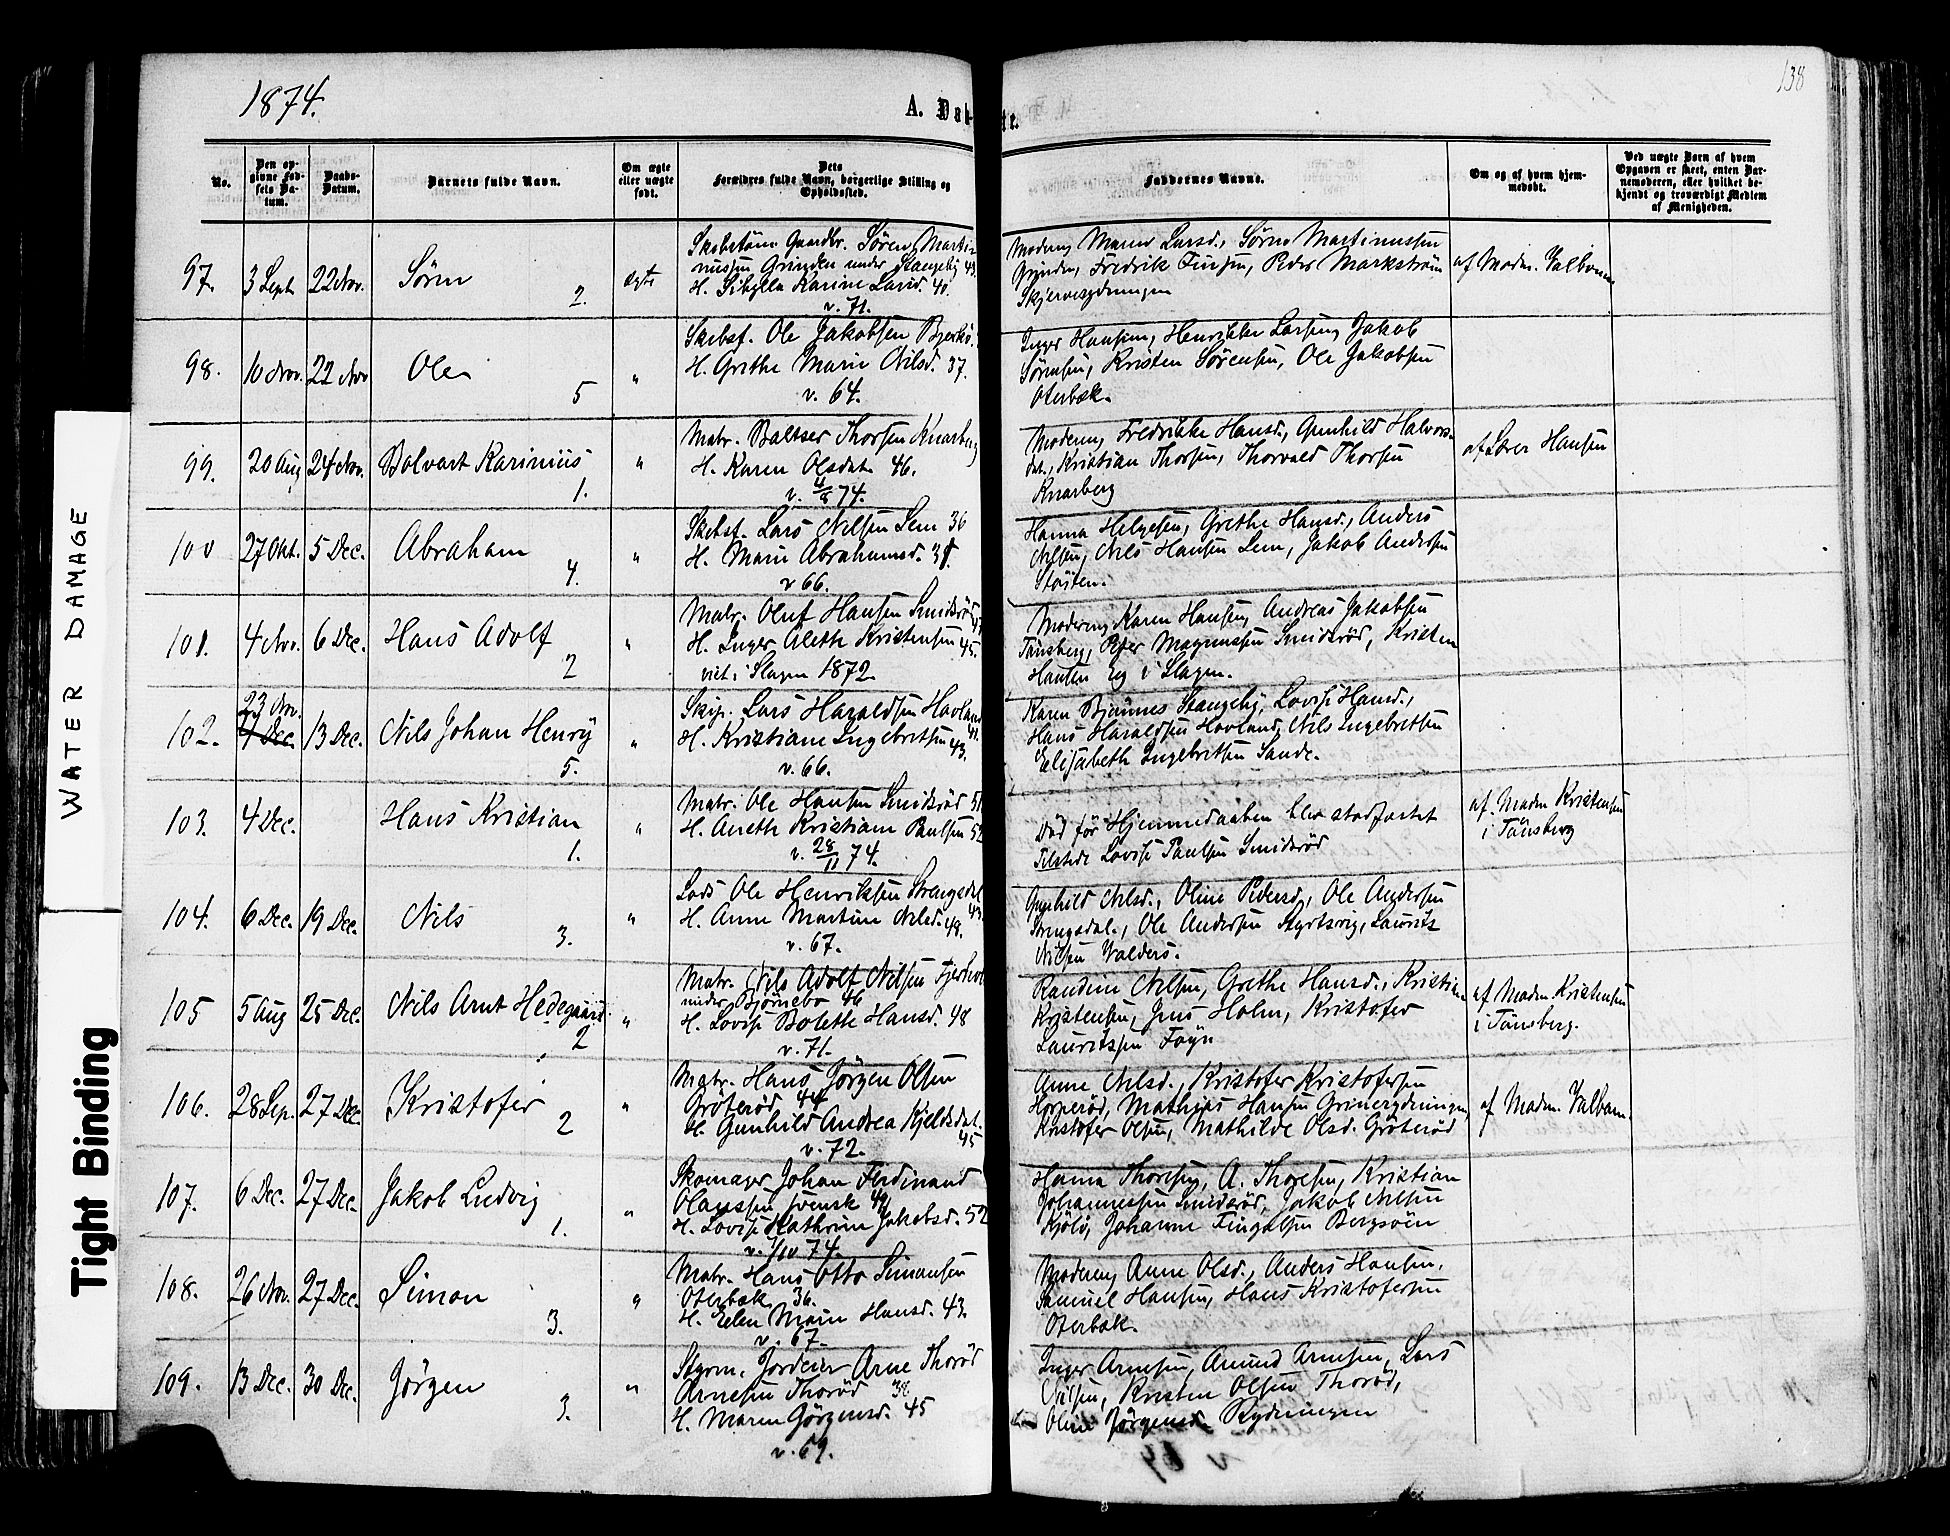 1874.
138
A. Døb
te.
No.
Den op-
givne Fød-
sels Da-
tum.
Daabs-
Datum.
Barnets fulde Navn.
Om ægte
eller uægte
født.
Dets
Forældres fulde Navn, borgerlige Stilling og
Opholdssted.
Faddernes Navne.
Om og af hvem hjem-
medøbt.
Ved uægte Børn af hvem
Opgaven er skeet, enten Bar-
nemoderen, eller hvilket be-
kjendt og troværdigt Medlem
af Menigheden.
97. 3 Sept 22 Nov. Sørn 2. ægte
Skibstøm Gaardbr. Søren Martin
nussen Grinden under Stangeby 43.
H. Sibylla Karine Larsd. 40.
v. 71.
Moderen, Maren Larsd., Sørn Martinussen
Grinden, Fredrik Finsen, Peder Markström
af Madm. Valborn
98. 10 Nov. 22 Nov Ole 5 "
Skibsf. Ole Jakobsen Bjerkö.
H. Grethe Marie Nilsd. 37.
v. 64.
Inger Hansen, Henrikke Larsen, Jakob
Sörensen, Kristen Sörensen, Ole Jakobsen
Oterbæk.
99. 20 Aug 24 Nov. Bolvart Karinius 1. "
Matr. Baltser Thorsen Knarberg
H. Karen Olsdat. 46.
v. 4/8 74.
Moderen, Fredrikke Hansd., Gunhild Halvors-
dat., Kristian Thorsen, Thorvald Thorsen
Knarberg
af Lærer Hansen
100 27 Okt. 5 Dec. Abraham 4. "
Skibsf. Lars Nilsen Lem 36
H. Marie Abrahamsd. 38.
v 66.
Hanna Helgesen, Grethe Hansd., Anders
Nilsen, Nils Hansen Lem, Jakob Andersen
Stöiten.
101. 4 Nov. 6 Dec. Hans Adolf 2 "
Matr. Oluf Hansen Smidsröd 47
H. Inger Aleth Kristensen 45.
viet i Slagen 1872.
Moderen, Karen Hansen, Andreas Jakobsen
Tönsberg, Peter Magnussen Smidsröd, Kristen
Hansen Eg i Slagen.
102. 23 Nov. 7 Dec. 13 Dec. Nils Johan Henry 5. "
Skip. Lars Haraldsen Hovland 41.
H. Kristiane Ingebretsen 43.
v. 66.
Karen Bjönnes Stangeby, Lovise Hansd.,
Hans Haraldsen Hovland, Nils Ingebretsen
Elisabeth Ingebretsen Sande.
103. 4 Dec. Hans Kristian 1. "
Matr. Ole Hansen Smidsröd 51
H. Aneth Kristiane Paulsen 52
v. 28/11 74.
Död för Hjemmedaaben blev stadfæstet
Tilstede Lovise Paulsen Smidsröd
af. Madm Kristensen
i Tönsberg
104. 6 Dec. 19 Dec. Nils 3. "
Lods Ole Henriksen Strengsdal 43.
H. Anne Martine Nilsd. 48.
v. 67.
Gunhild Nilsd., Oline Pedersd., Ole Andersen
Strengsdal., Ole Andersen Styrtsvig, Laurits
Nilsen Valders.
105 5 Aug 25 Dec. Nils Arnt Hedegaard. 2 "
Matr. Nils Adolf Nilsen Fjerholt
under Bjørnebo 46
H. Lovise Bolette Hansd. 48
v. 71.
Randine Nilsen, Grethe Hansd., Kristian
Kristensen, Jens Holm, Kristofer
Lauritssen Föyn
af Madm. Kristensen
i Tönsberg.
106. 28 Sep. 27 Dec. Kristofer 2 "
Matr. Hans Jörgen Olsen
Gröteröd 44
H. Gunhild Andrea Kjeldsdat. 45
v. 72.
Anne Nilsd., Kristofer Kristofersen
Horperöd, Mathias Hansen Grimerydningen,
Kristofer Olsen, Mathilde Olsd. Gröteröd
af Madm. Valborn.
107. 6 Dec. 27 Dec. Jakob Ludvig 1. "
Skomager Johan Ferdinand
Olaussen svensk 49
H. Lovise Kathrine Jakobsd. 52
v. 1/10 74.
Hanna Thoresen, A. Thoresen, Kristian
Johannessen Smidsröd, Jakob Nilsen
Kjölö, Johanne Fingalsen Bergsöen
108. 26 Nov. 27 Dec. Simon 3. "
Matr. Hans Otto Simonsen
Oterbæk 36.
H. Elen Marie Hansd. 43.
v. 67
Moderen, Anne Olsd., Anders Hansen,
Samuel Hansen, Hans Kristofersen
Oterbæk.
109. 13 Dec. 30 Dec. Jörgen 3. "
Styrm. Jordeier Arne Thoröd
Arnesen Thoröd 38
H. Maren Jörgensd. 45
v. 69.
Inger Arnesen, Amund Arnesen, Lars
Nilsen, Kristen Olsen Thoröd,
Oline Jörgensd. Rydningen
WATER DAMAGE
Tight Binding